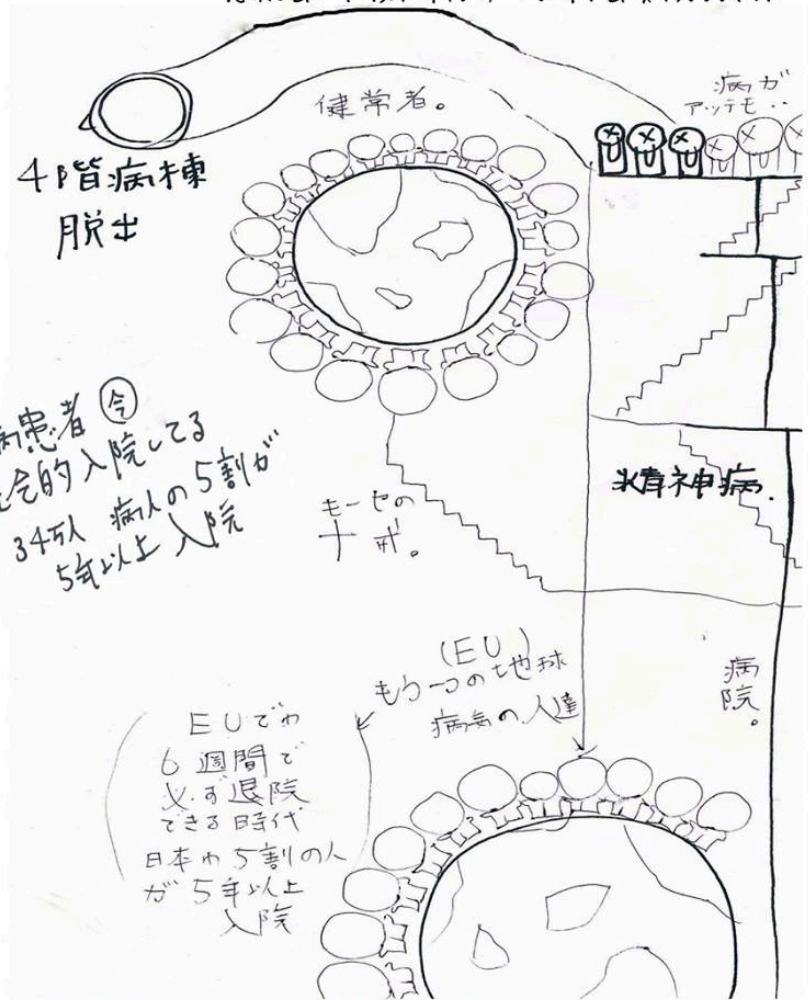 健常者。
病が
アッテモ・・
4階病棟
脱出
病患者 今
会的入院してる
34万人 病人の5割が
5年以上入院
モーセの
十戒。
精神病.
(EU)
もう一つの地球
病気の人達
病院。
EUでわ
6週間で
必ず退院
できる時代
日本わ5割の人
が5年以上
入院